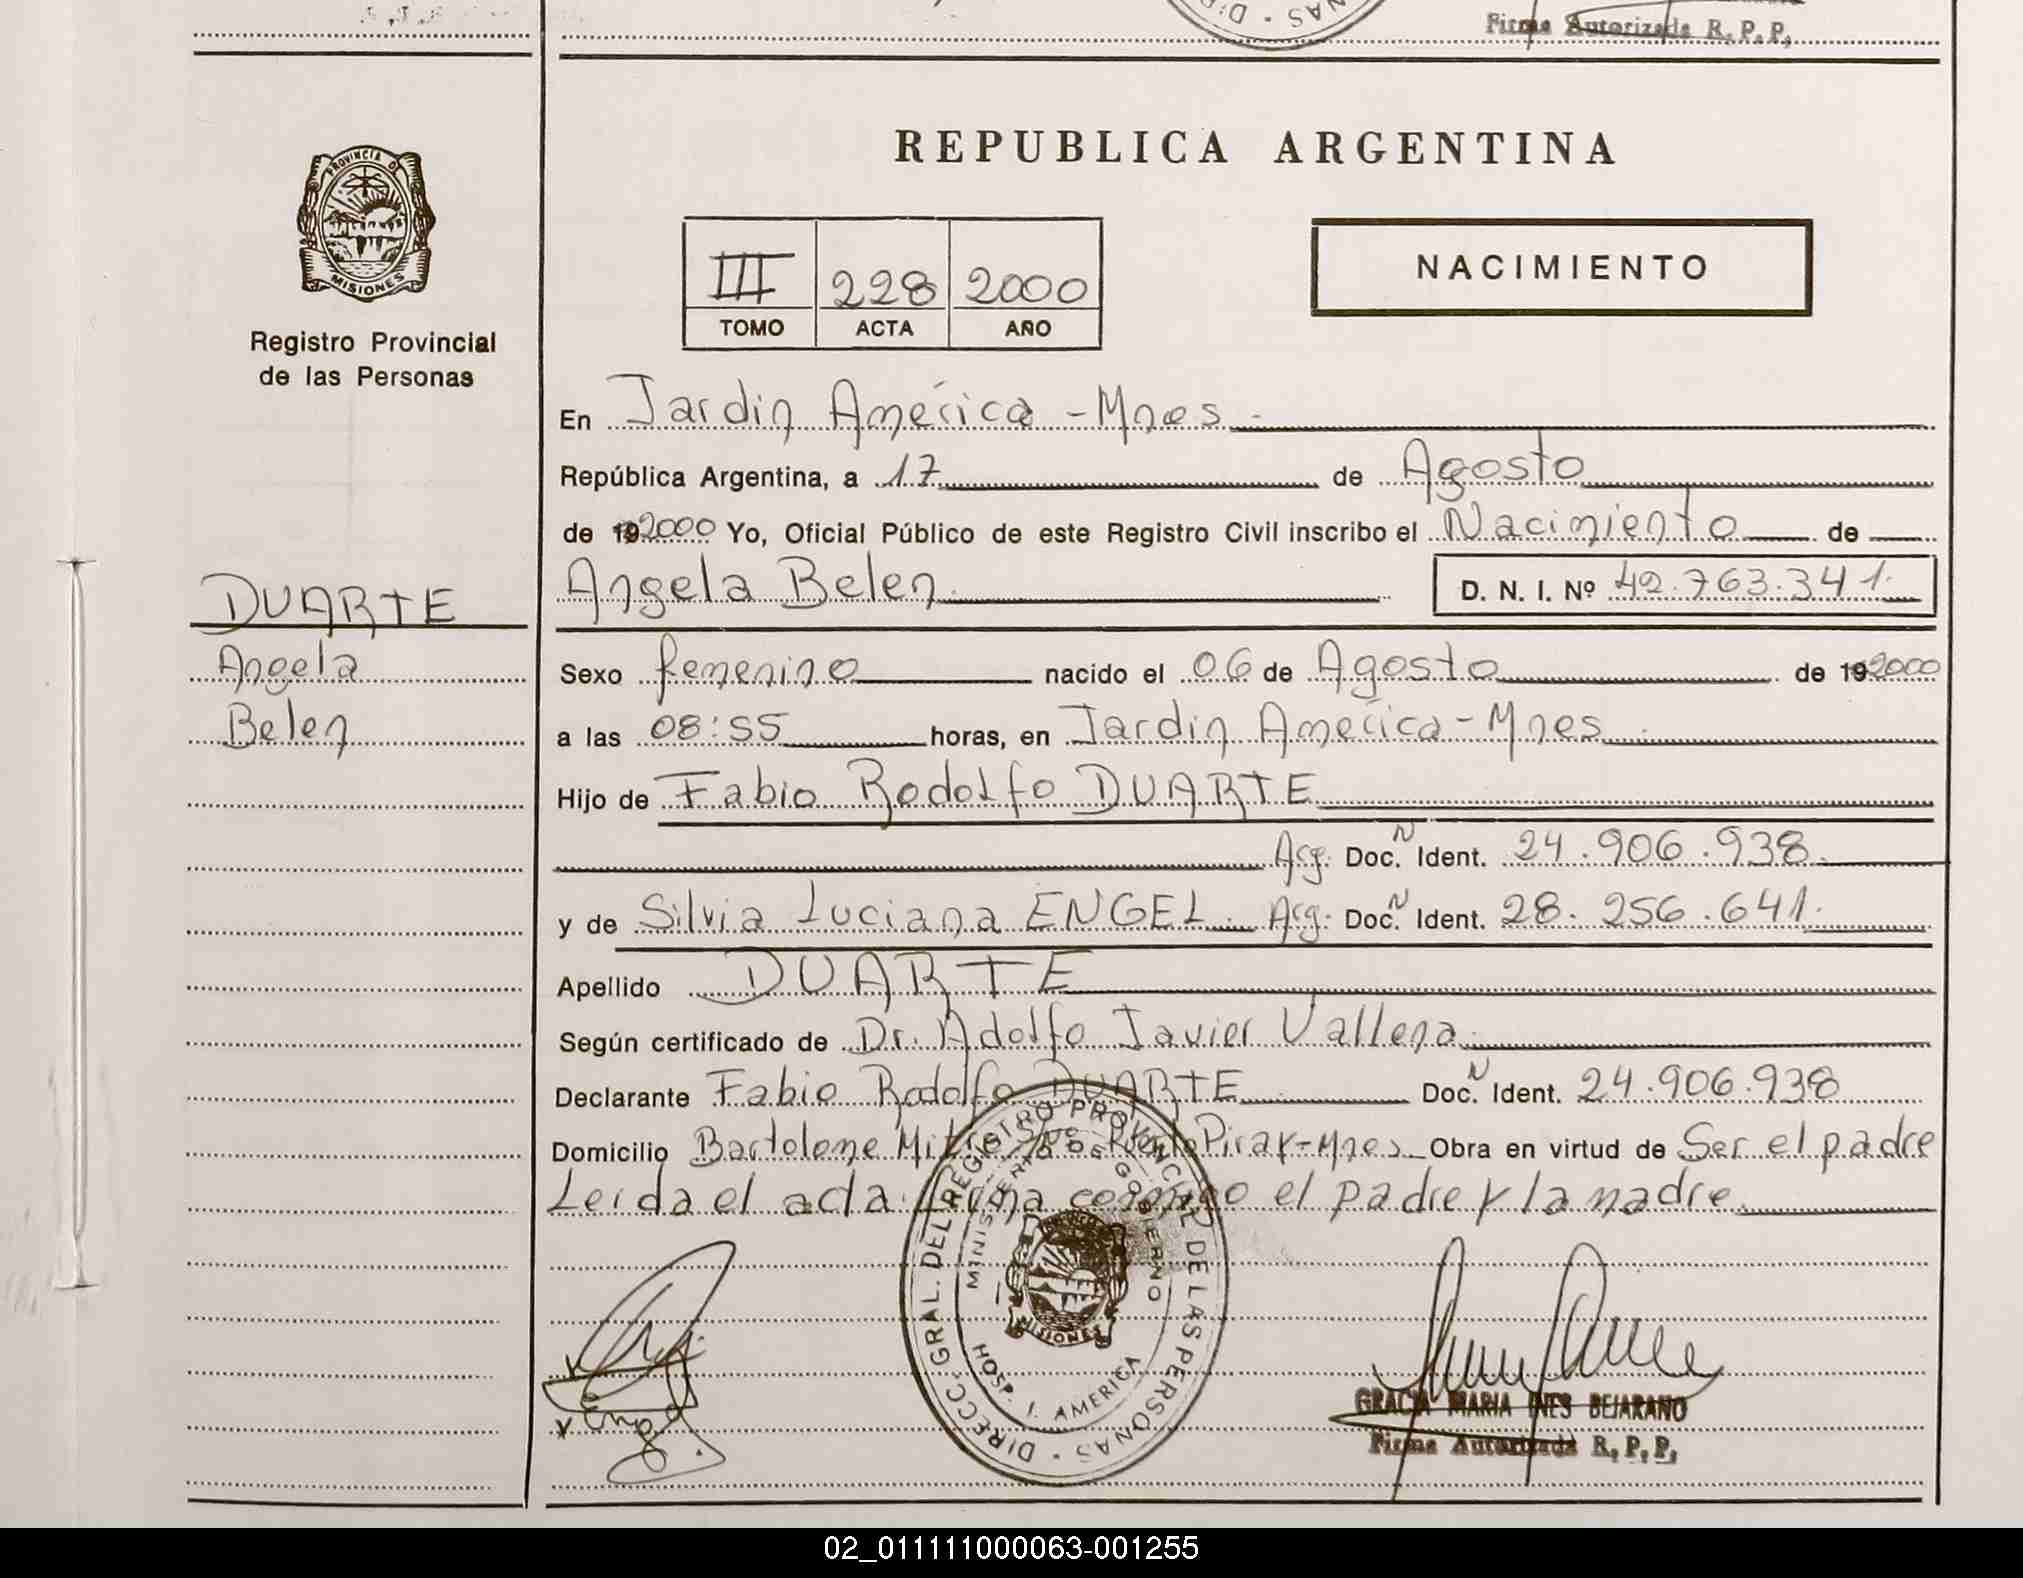 Firma Autorizada R. P. P.
REPUBLICA ARGENTINA
PROVINCIA DE
MISIONES
Registro Provincial
de las Personas
III 228 2000
TOMO ACTA AÑO
NACIMIENTO
En Jardin América - Mnes.-
República Argentina, a 17 de Agosto
de 19 2000 Yo, Oficial Público de este Registro Civil inscribo el Nacimiento de
Angela Belen D. N. I. Nº 42.763.341.
DUARTE
Angela
Belen
Sexo femenino nacido el 06 de Agosto de 19 2000
a las 08:55 horas, en Jardin América - Mnes.
Hijo de Fabio Rodolfo DUARTE
Arg. Doc. N Ident. 24.906.938.
y de Silvia Luciana ENGEL. Arg. Doc. N Ident. 28.256.641.
Apellido DUARTE
Según certificado de Dr. Adolfo Javier Vallena
Declarante Fabio Rodolfo DUARTE Doc. N Ident. 24.906.938
Domicilio Bartolome Mitre Pto Piray-Mnes. Obra en virtud de Ser el padre
Leida el acta firma conmigo el padre y la madre.
DIRECC. GRAL. DEL REGISTRO PROVINCIAL DE LAS PERSONAS
MINISTERIO DE GOBIERNO
MISIONES
HOSP. J. AMERICA
GRACIA MARIA INES BEJARANO
Firma Autorizada R. P. P.
02_011111000063-001255